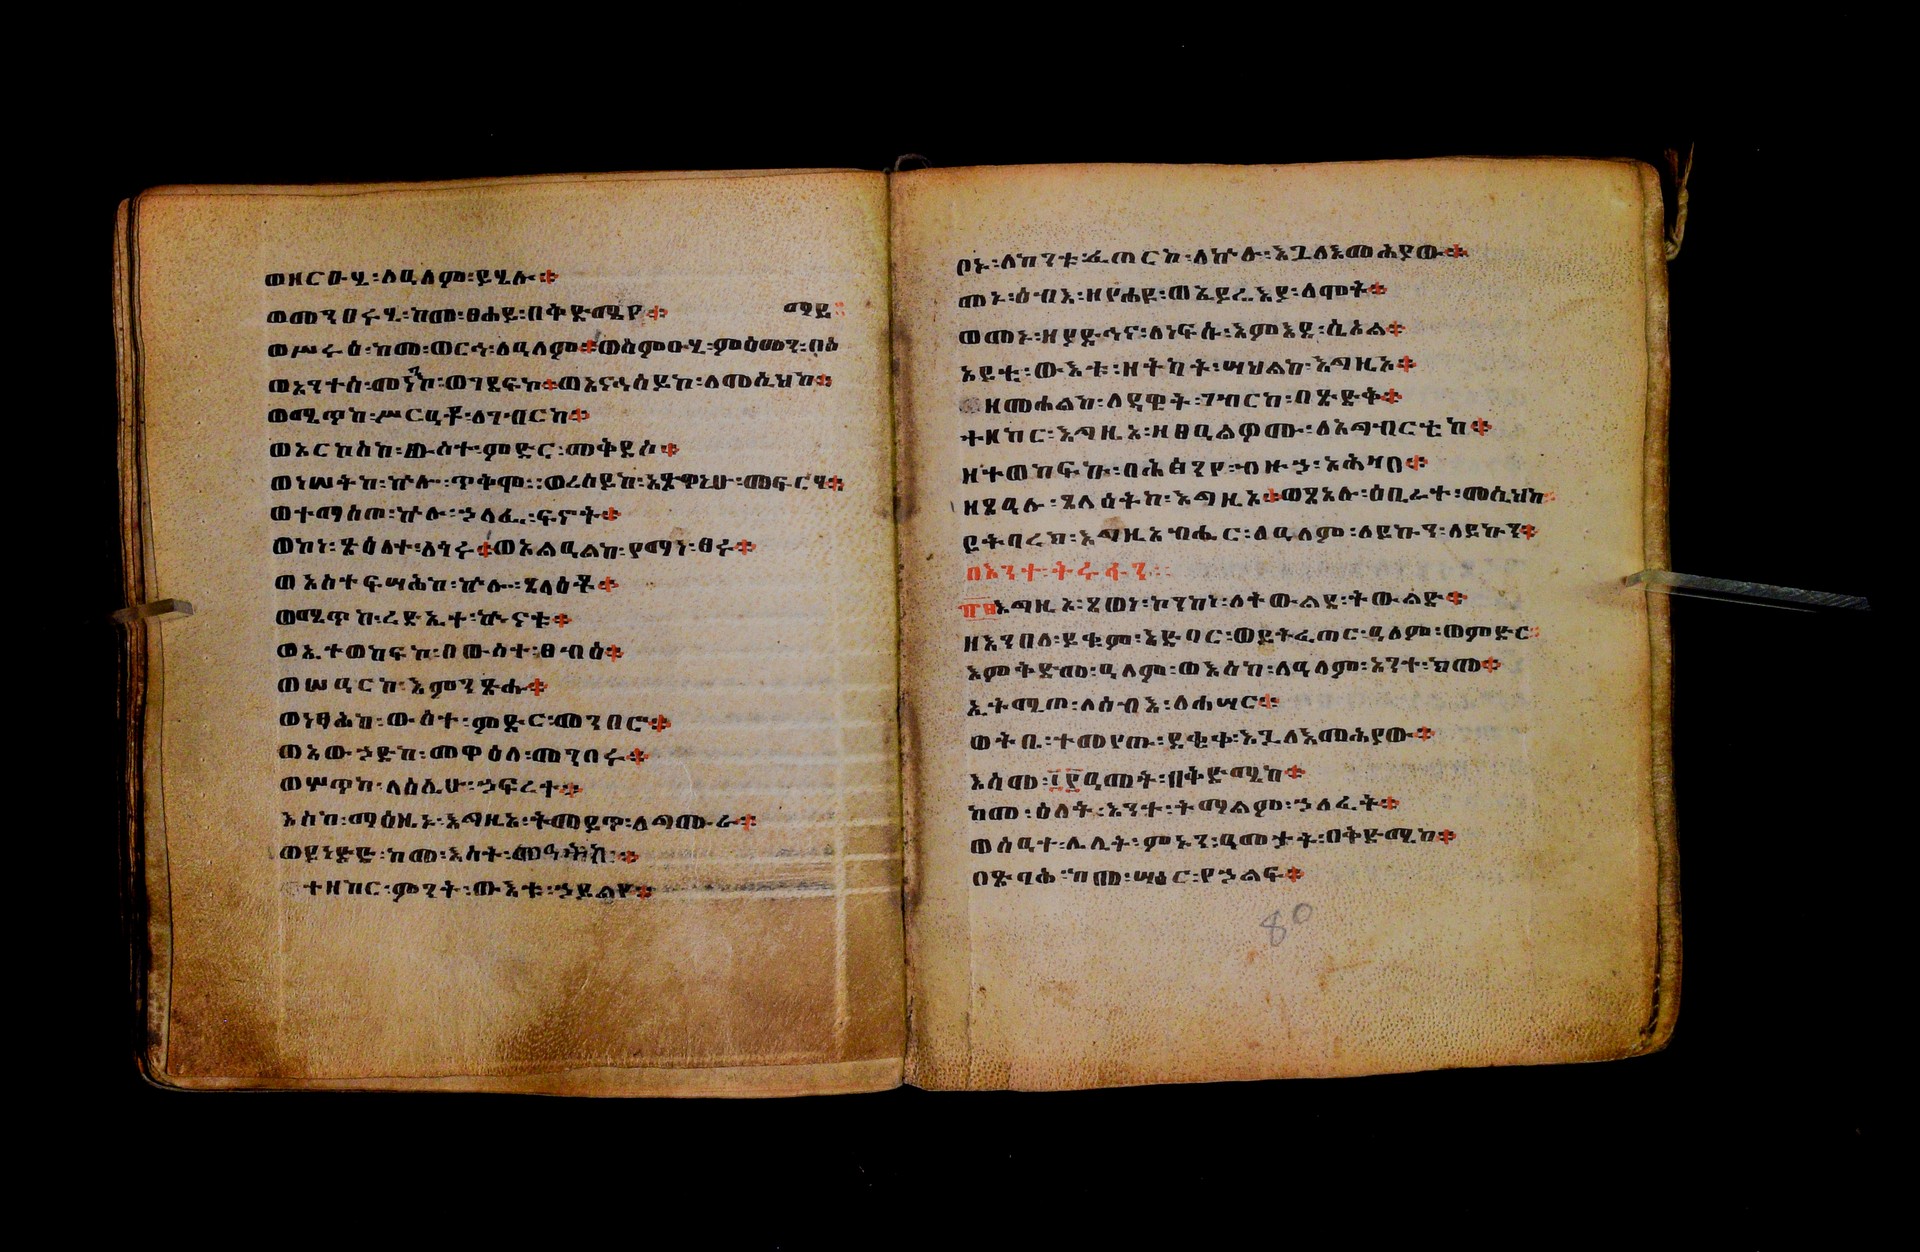 ወዘርዑሂ፡ለዓለም፡ይሄሉ።
ወመንበሩሂ፡ከመ፡ፀሐይ፡በቅድሜየ።
ወሥሩዕ፡ከመ፡ወርኅ፡ለዓለም።ወስምዑሂ፡ምዕመን፡በሰ
ማይ፡
ወአንተሰ፡መነንከ፡ወገደፍከ።ወአናኅስይከ፡ለመሲሕከ።
ወሜጥከ፡ሥርዓቶ፡ለገብርከ።
ወአርኰስከ፡ውስተ፡ምድር፡መቅደሶ።
ወነሠትከ፡ኵሎ፡ጥቅሞ፡፡ወረሰይከ፡አጽዋኒሁ፡መፍርሄ።
ወተማሰጦ፡ኵሉ፡ኃላፌ፡ፍኖት።
ወኮነ፡ጽዕለተ፡ለጎሩ።ወአልዓልከ፡የማነ፡ፀሩ።
ወአስተፍሣሕከ፡ኵሎ፡ጸላዕቶ።
ወሜጥከ፡ረድኤተ፡ኵናቱ።
ወኢተወከፍኮ፡በውስተ፡ፀብዕ።
ወሠዓርኮ፡እምንጽሑ።
ወነፃሕከ፡ውስተ፡ምድር፡መንበሮ።
ወአውኃድከ፡መዋዕለ፡መንበሩ።
ወሦጥከ፡ላዕሌሁ፡ኃፍረተ።
እስከ፡ማዕዜኑ፡እግዚኦ፡ትመይጥ፡ለግሙራ።
ወይነድድ፡ከመ፡እሳት፡መዓትከ፡።
ተዘከር፡ምንት፡ውእቱ፡ኃይልየ።
ቦኑ፡ለከንቱ፡ፈጠርኮ፡ለኵሉ፡እጓለእመሕያው።
መኑ፡ዕብእ፡ዘየሐዩ፡ወኢይሬእያ፡ለሞት።
ወመኑ፡ዘያድኅና፡ለነፍሱ፡እምእደ፡ሲኦል።
አይቴ፡ውእቱ፡ዘትካት፡ሣህልከ፡እግዚኦ።
ዘመሐልከ፡ለዳዊት፡ገብርከ፡በጽድቅ።
ተዘከር፡እግዚኦ፡ዘፀዓልዎሙ፡ለአግብርቲከ።
ዘተወከፍኩ፡በሕፅንየ፡ብዙኃ፡አሕዛበ።
ዘጸዓሉ፡ጸላዕትከ፡እግዚኦ።ወጸአሉ፡ዕቤራተ፡መሲሕከ፡
ይትባረክ፡እግዚአብሔር፡ለዓለም፡ለይኩን፡ለይኩን።
በእንተ፡ትሩፋን፡፡
፹፱እግዚኦ፡ጸወነ፡ኮንከነ፡ለትውልደ፡ትውልድ።
ዘእንበለ፡ይቁም፡አድባር፡ወይትፈጠር፡ዓለም፡ወምድር፡
እምቅድመ፡ዓለም፡ወእስከ፡ለዓለም፡አንተ፡ክመ።
ኢትሚጦ፡ለሰብእ፡ለሐሣር።
ወትቤ፡ተመየጡ፡ደቂቀ፡እጓለእመሕያው።
እስመ፡፲፻ዓመት፡በቅድሜከ።
ከመ፡ዕለት፡እንተ፡ትማልም፡ኃለፈት።
ወሰዓተ፡ሌሊት፡ምኑን፡ዓመታት፡በቅድሜከ።
በጽባሕ፡ከመ፡ሣዕር፡የኃልፍ።
80